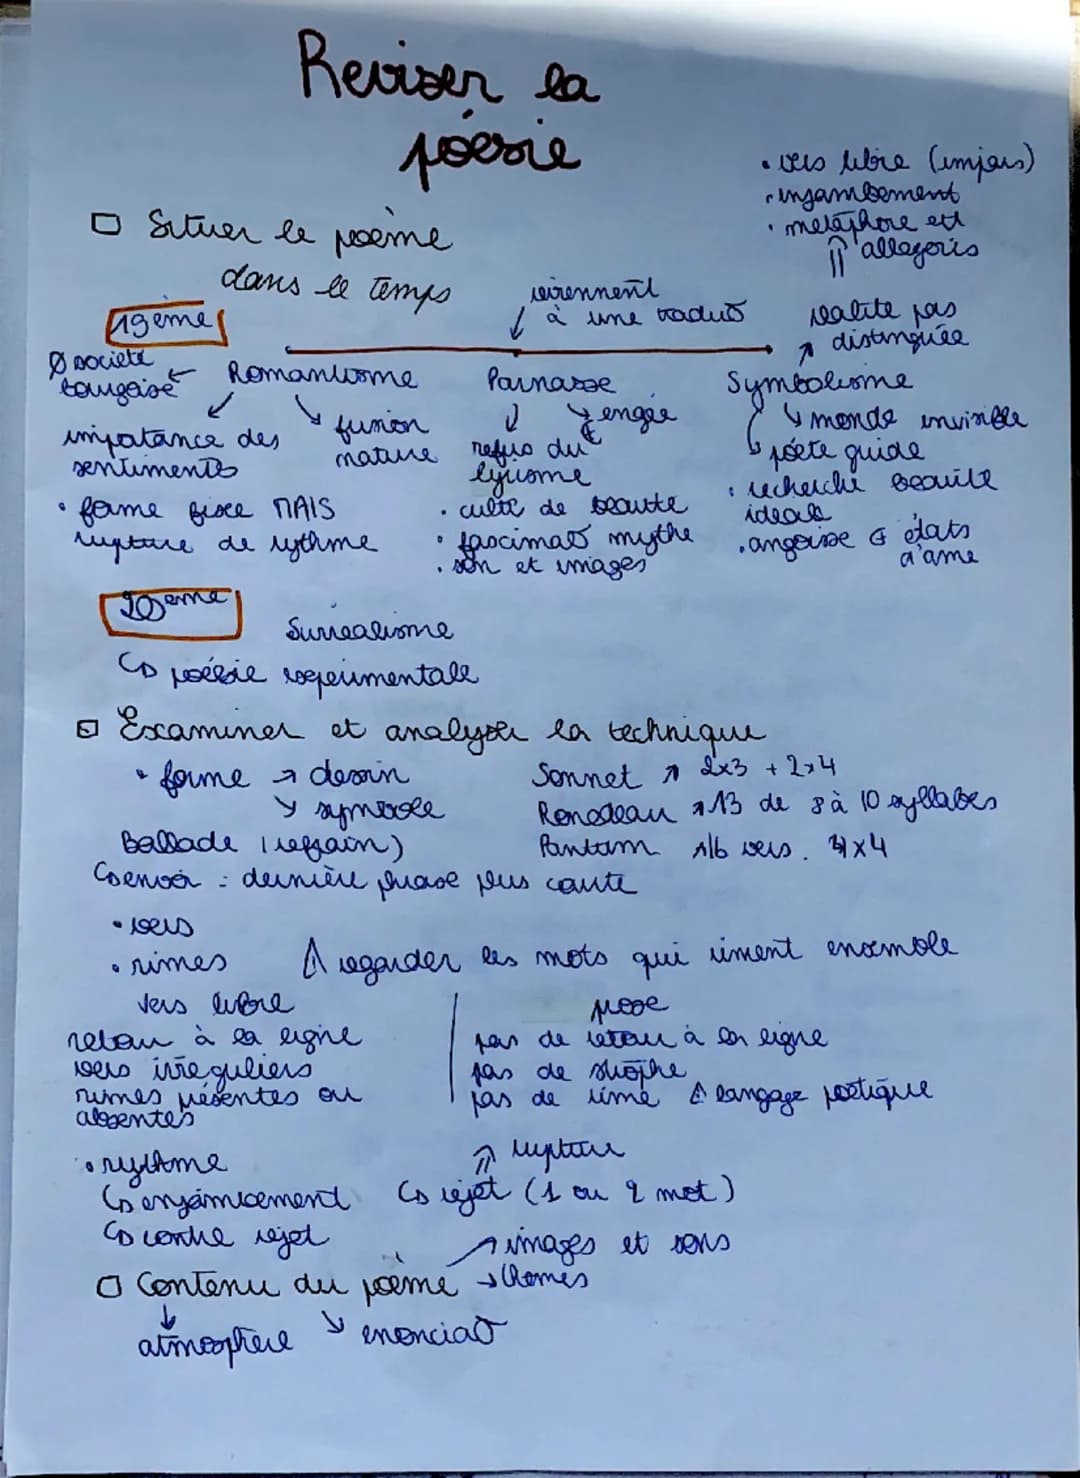 Reviser la
poésie
• vers libre (impairs)
• enjambement
• métaphore et
allégories
□ Situer le poème
dans le temps
19ème
reviennent
à une traduct°
réalité pas
distinguée
Ø société
bourgeoise
Romantisme
Parnasse
Symbolisme
importance des
sentiments
fusion
nature
refus du
lyrisme
monde invisible
poète guide
• forme fixe MAIS
rupture de rythme
• culte de beauté
• fascinat° mythe
• son et images
• recherche beauté
idéale
• angoisse et états
d'ame
20ème
Surréalisme
↳ poésie expérimentale
□ Examiner et analyser la technique
• forme → dessin
↘ symbole
Sonnet ↗ 2x3 + 2x4
Rondeau ↗ 13 de 8 à 10 syllabes
Ballade (refrain)
Pantum 16 vers. 4x4
↳ envoi : dernière phrase plus courte
• vers
• rimes
⚠ regarder les mots qui riment ensemble
vers libre
retour à la ligne
vers irréguliers
rimes présentes ou
absentes
prose
pas de retour à la ligne
pas de strophe
pas de rime ⚠ langage poétique
• rythme
⇗ rupture
↳ enjambement ↳ rejet (1 ou 2 mot)
↳ contre rejet
↗ images et sons
□ Contenu du poème → thèmes
↓
atmosphère ↘ énonciat°